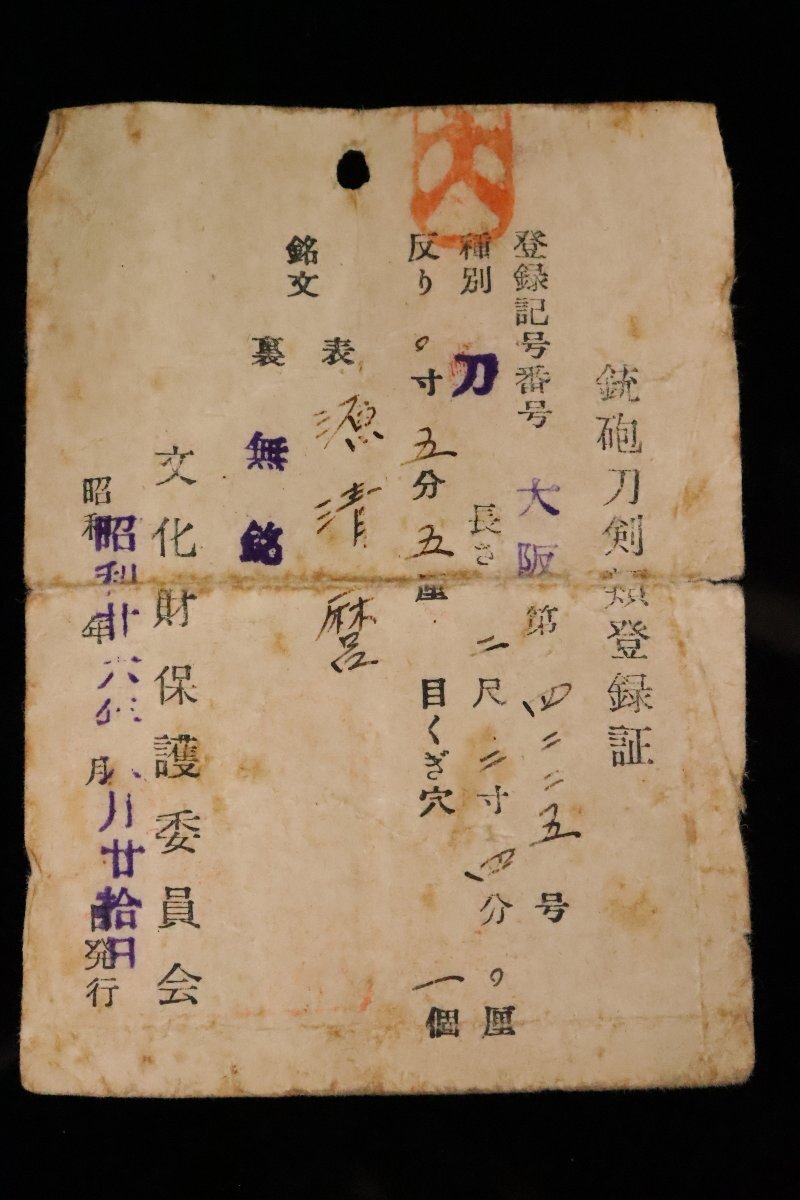 銃砲刀剣類登録証
登録記号番号 大阪 第四二二五号
種別 刀 長さ 二尺二寸四分〇厘
反り 〇寸五分五厘 目くぎ穴 一個
銘文 表 源清麿
裏 無銘
文化財保護委員会
昭和 年 月 日発行
昭和廿六年 月廿拾日